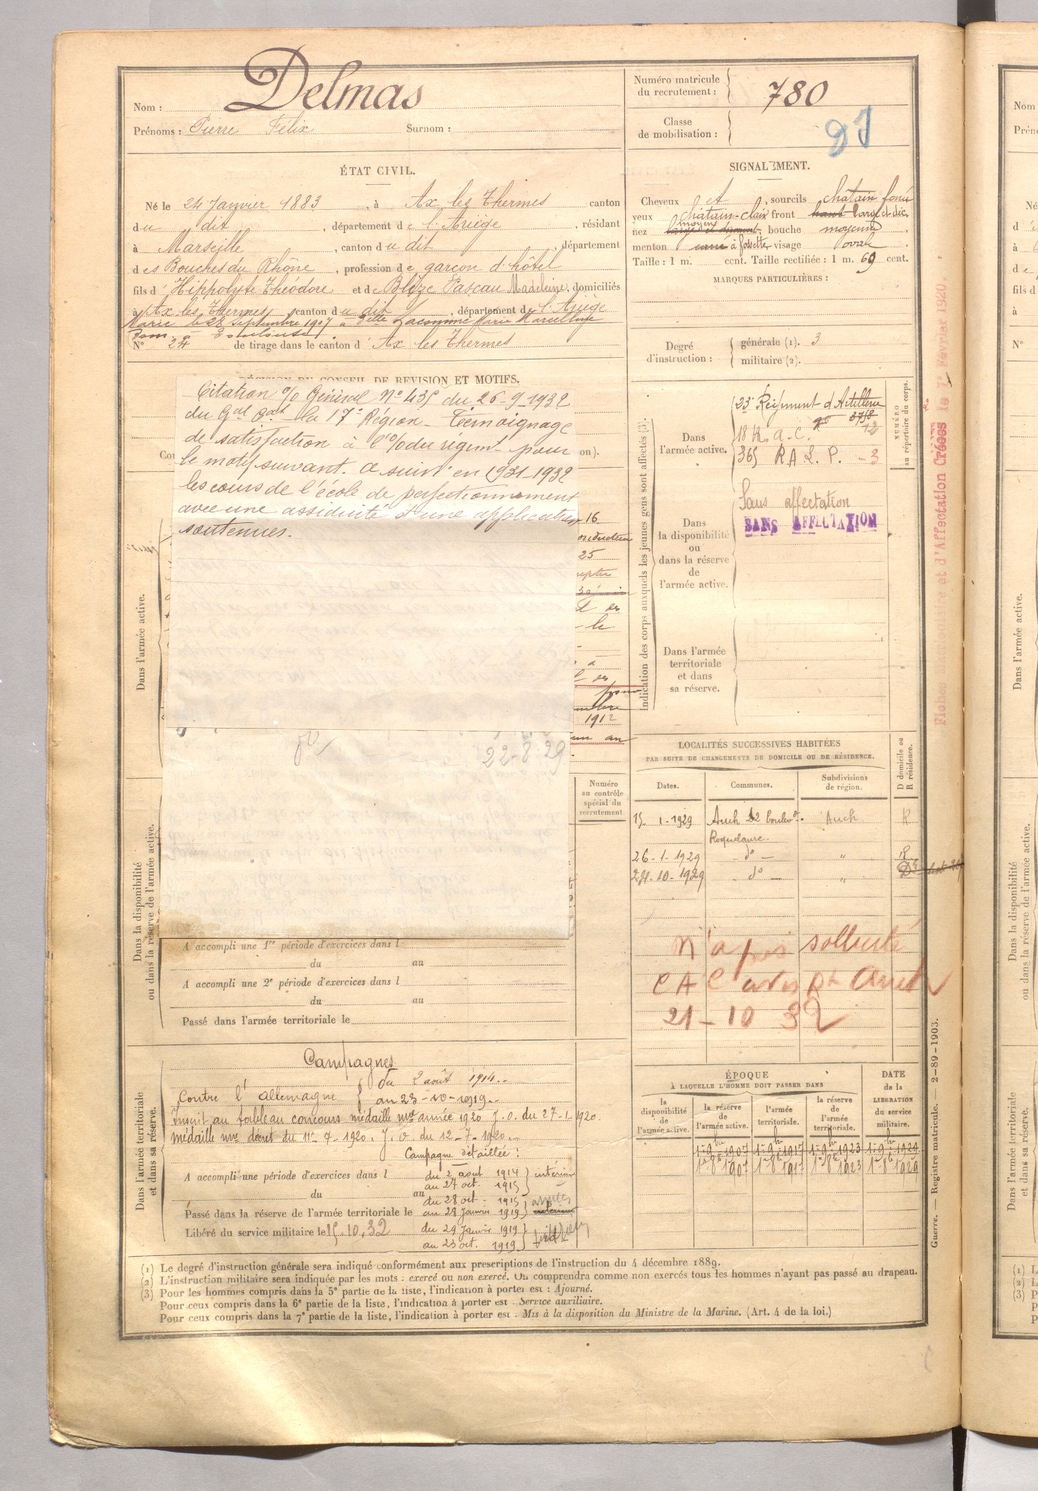 Nom : Delmas
Prénoms : Pierre Félix Surnom :
Numéro matricule du recrutement : 780
Classe de mobilisation :
ÉTAT CIVIL.
Né le 24 Janvier 1883, à Ax les Thermes canton
du dit, département de l'Ariège, résidant
à Marseille, canton du dit, département
des Bouches du Rhône, profession de garçon d'hôtel
fils d' Hippolyte Théodore et de Blaze Pascau Madeleine, domiciliés
à Ax les Thermes, canton du dit, département de l'Ariège
Marié le 28 Septembre 1907 à Delle Lacomme Marie Marcelline
N° 24 de tirage dans le canton d' Ax les Thermes
SIGNALEMENT.
Cheveux et sourcils chatain foncé
yeux chatain-clair front
nez moyen bouche moyenne
menton à fossette visage ovale
Taille : 1 m. cent. Taille rectifiée : 1 m. 69 cent.
MARQUES PARTICULIÈRES :
Degré d'instruction : générale (1). 3
militaire (2).
DÉCISION DU CONSEIL DE REVISION ET MOTIFS.
Citation % Général N° 435 du 26-9-1932
du Gal Cdt la 17e Région - Témoignage
de satisfaction à l'% du régiment pour
le motif suivant. A suivi en 1931-1932
les cours de l'école de perfectionnement
avec une assiduité et une application
soutenues.
22-8-29
Indication des corps auxquels les jeunes gens sont affectés (3).
NUMÉRO au répertoire du corps.
Dans l'armée active.
23e Régiment d'Artillerie
18 R. a. C.
365 R A L P. - 3
Dans la disponibilité ou dans la réserve de l'armée active.
Sans affectation
SANS AFFECTATION
Dans l'armée territoriale et dans sa réserve.
Dans l'armée active.
16
25
1912
LOCALITÉS SUCCESSIVES HABITÉES
PAR SUITE DE CHANGEMENTS DE DOMICILE OU DE RÉSIDENCE.
Dates. Communes. Subdivisions de région. D domicile ou R résidence.
15-1-1929 Auch 12 boulev. Auch R
Roquelaure.
26-1-1929 - do - " R
24-10-1929 - do - " D
N'a pas sollicité
C A C avis Auch
21-10 32
Numéro au contrôle spécial du recrutement
Dans la disponibilité ou dans la réserve de l'armée active.
A accompli une 1re période d'exercices dans l
du au
A accompli une 2e période d'exercices dans l
du au
Passé dans l'armée territoriale le
Dans l'armée territoriale et dans sa réserve.
Campagnes
Contre l'Allemagne du 2 août 1914..
au 23-10-1919..
Inscrit au tableau concours médaille mre année 1920 J.O. du 27-1-1920
médaille mre décret du 11-7-1920. J.O. du 12-7-1920..
Campagne détaillée :
A accompli une période d'exercices dans l
du 2 aout 1914
au 27 oct. 1915 intérieur
du au
du 28 oct. 1915
Passé dans la réserve de l'armée territoriale le
au 28 Janvier 1919 armées
Libéré du service militaire le 15.10.32
du 29 Janvier 1919
au 23 oct. 1919
ÉPOQUE
À LAQUELLE L'HOMME DOIT PASSER DANS
DATE de la LIBÉRATION du service militaire.
la disponibilité de l'armée active. la réserve de l'armée active. l'armée territoriale. la réserve de l'armée territoriale.
1-9bre 1907 1-9bre 1917 1-9bre 1923 1-9bre 1929
(1) Le degré d'instruction générale sera indiqué conformément aux prescriptions de l'instruction du 4 décembre 1889.
(2) L'instruction militaire sera indiquée par les mots : exercé ou non exercé. On comprendra comme non exercés tous les hommes n'ayant pas passé au drapeau.
(3) Pour les hommes compris dans la 5e partie de la liste, l'indication à porter est : Ajourné.
Pour ceux compris dans la 6e partie de la liste, l'indication à porter est : Service auxiliaire.
Pour ceux compris dans la 7e partie de la liste, l'indication à porter est : Mis à la disposition du Ministre de la Marine. (Art. 4 de la loi.)
Guerre. — Registre matricule. — 2-89-1903.